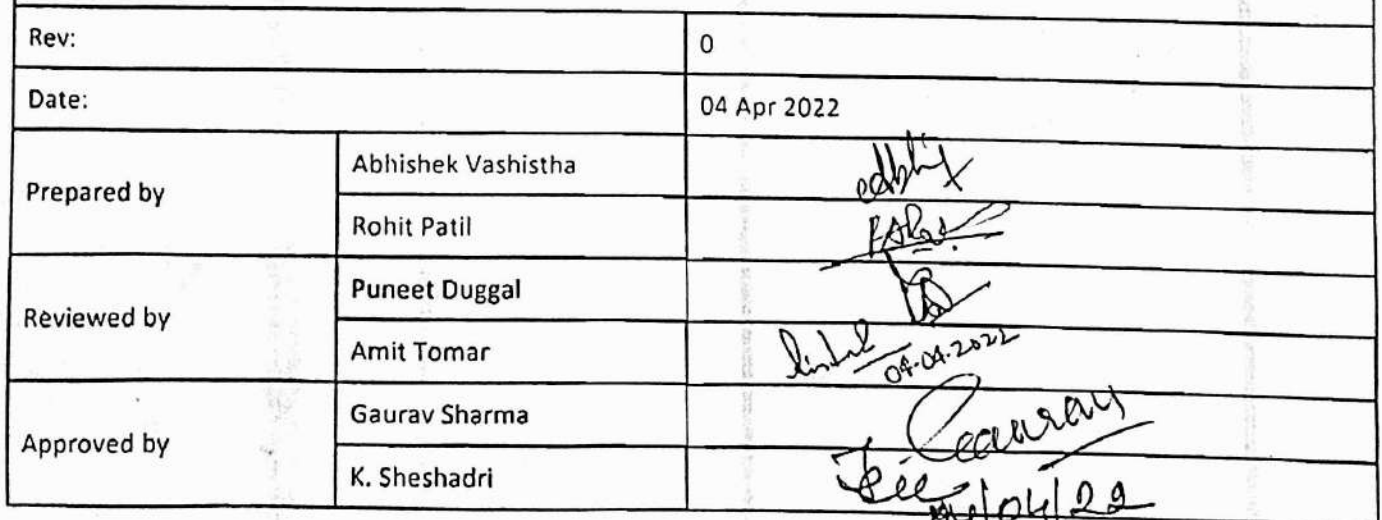 Rev: 0
Date: 04 Apr 2022
Prepared by
Abhishek Vashistha
Rohit Patil
Reviewed by
Puneet Duggal
Amit Tomar
04-04-2022
Approved by
Gaurav Sharma
Gaurav
K. Sheshadri